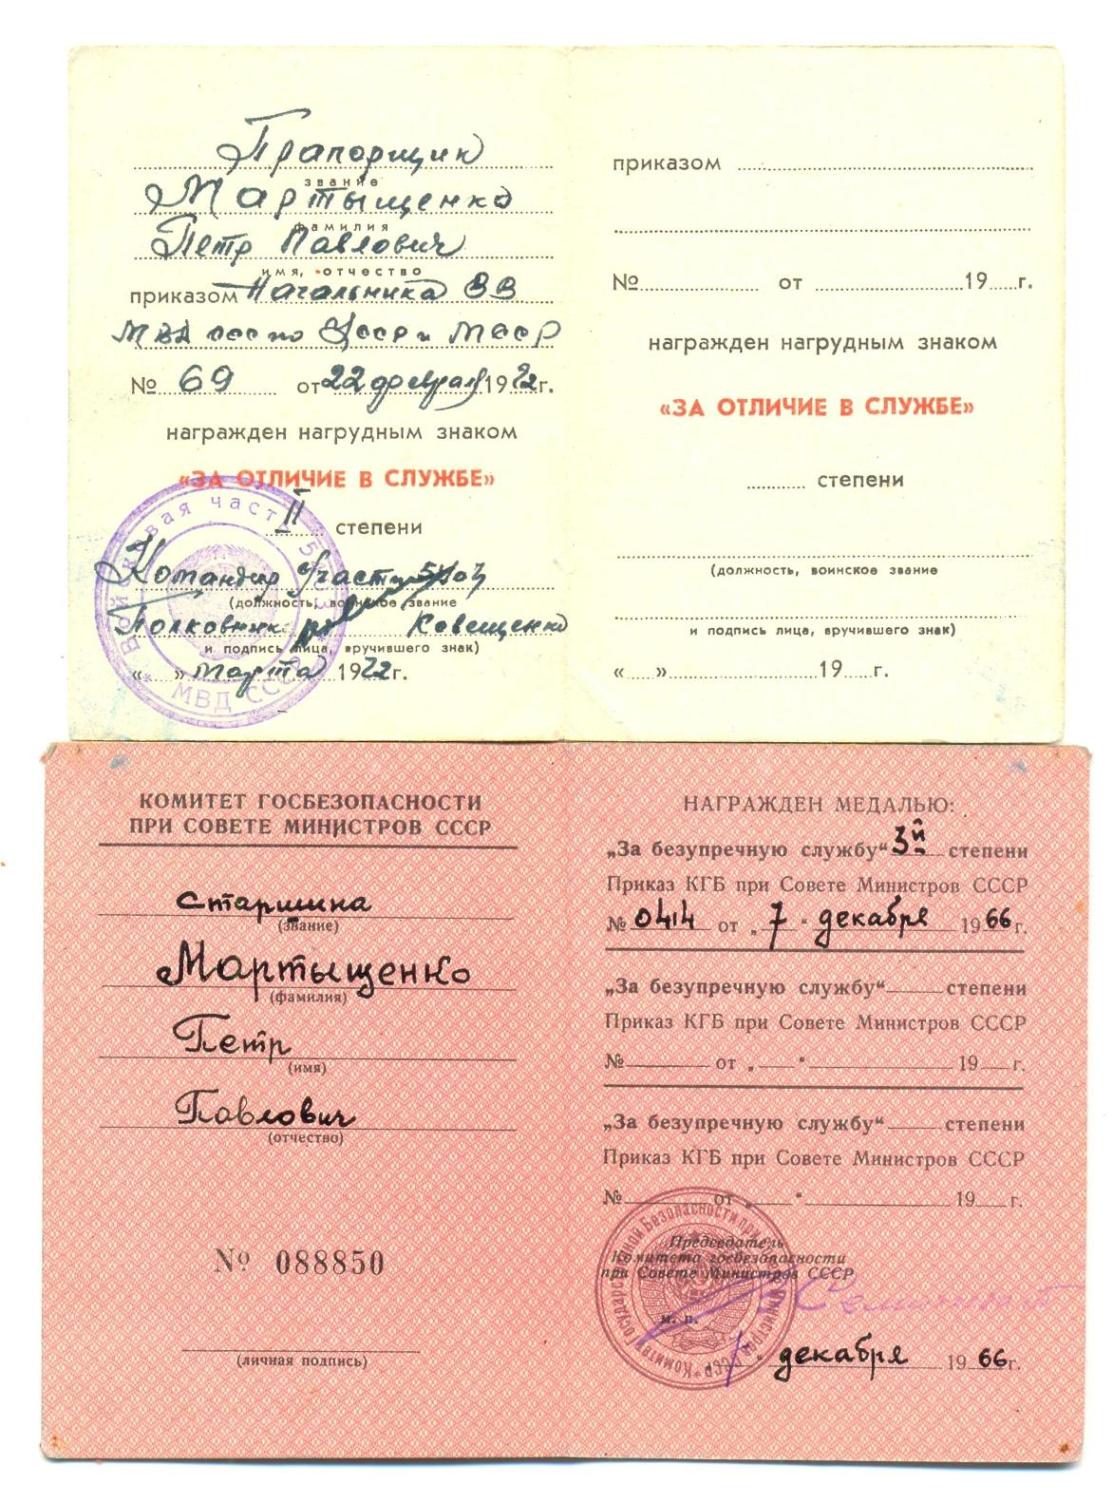 Прапорщик
звание
Мартыщенко
фамилия
Петр Павлович
имя, отчество
приказом Начальника ВВ
МВД ссс по УССР и МССР
№ 69 от 22 февраля 1972г.
награжден нагрудным знаком
«ЗА ОТЛИЧИЕ В СЛУЖБЕ»
II степени
Командир
(должность, воинское звание
Полковник Ковещенко
и подпись лица, вручившего знак)
« » марта 1972г.
Войсковая часть
МВД СССР
приказом
№ от 19 г.
награжден нагрудным знаком
«ЗА ОТЛИЧИЕ В СЛУЖБЕ»
степени
(должность, воинское звание
и подпись лица, вручившего знак)
« » 19 г.
КОМИТЕТ ГОСБЕЗОПАСНОСТИ
ПРИ СОВЕТЕ МИНИСТРОВ СССР
старшина
(звание)
Мартыщенко
(фамилия)
Петр
(имя)
Павлович
(отчество)
№ 088850
(личная подпись)
НАГРАЖДЕН МЕДАЛЬЮ:
„За безупречную службу“ 3й степени
Приказ КГБ при Совете Министров СССР
№ 0414 от „7“ декабря 1966г.
„За безупречную службу“ степени
Приказ КГБ при Совете Министров СССР
№ от „ “ 19 г.
„За безупречную службу“ степени
Приказ КГБ при Совете Министров СССР
№ от „ “ 19 г.
Председатель
Комитета госбезопасности
при Совете Министров СССР
м. п.
7 декабря 1966г.